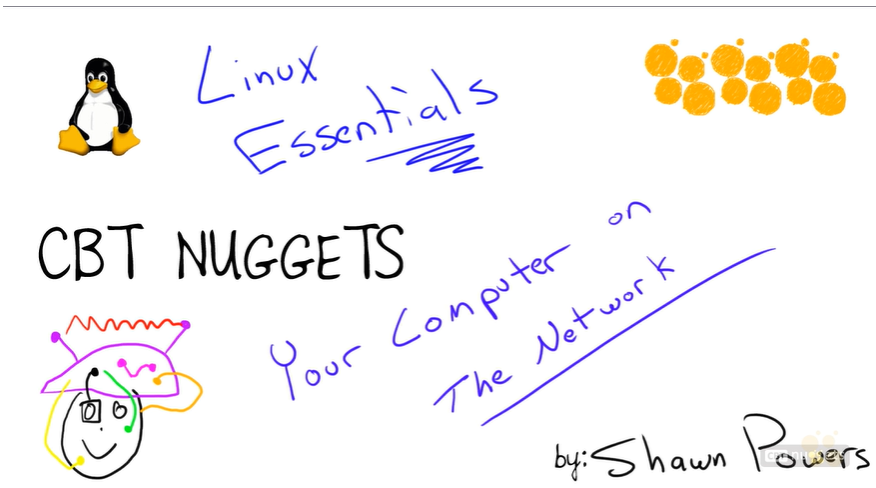 Linux
Essentials
CBT NUGGETS
Your Computer on
The Network
by: Shawn Powers
cbt nuggets